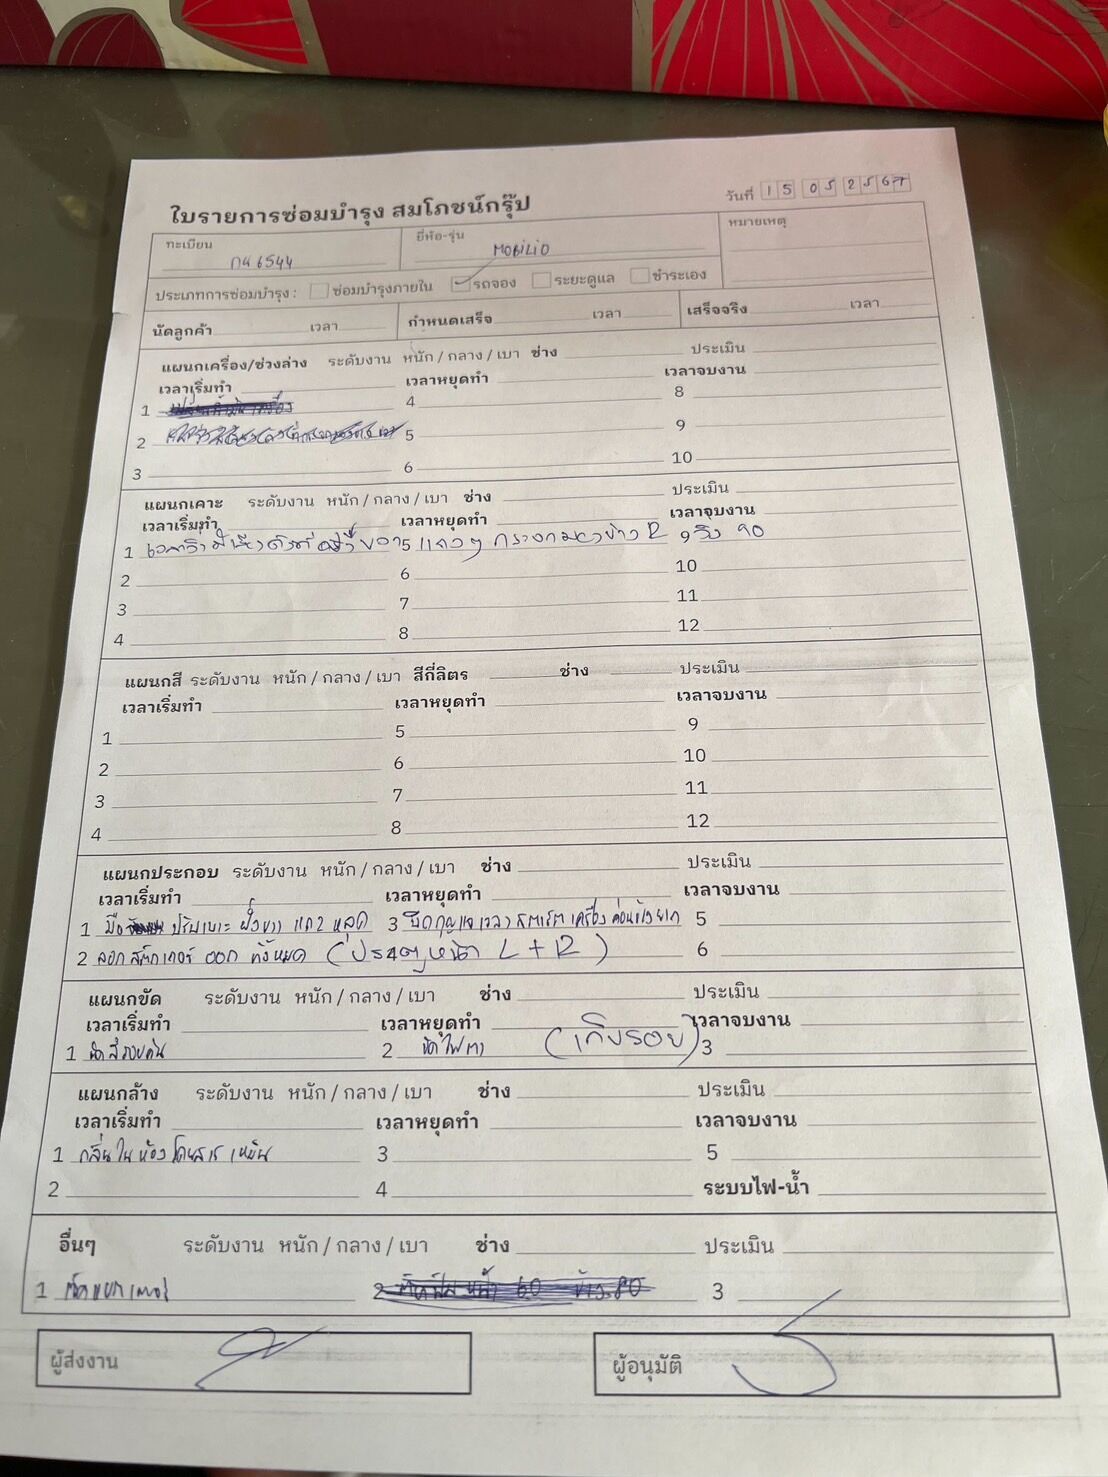 ใบรายการซ่อมบำรุง สมโภชน์กรุ๊ป
วันที่ 15 05 2567
ทะเบียน กษ 6544 ยี่ห้อ-รุ่น MOBILIO หมายเหตุ
ประเภทการซ่อมบำรุง : ซ่อมบำรุงภายใน รถจอง ระยะดูแล ชำระเอง
นัดลูกค้า เวลา กำหนดเสร็จ เวลา เสร็จจริง เวลา
แผนกเครื่อง/ช่วงล่าง ระดับงาน หนัก / กลาง / เบา ช่าง ประเมิน
เวลาเริ่มทำ เวลาหยุดทำ เวลาจบงาน
1 4 8
2 5 9
3 6 10
แผนกเคาะ ระดับงาน หนัก / กลาง / เบา ช่าง ประเมิน
เวลาเริ่มทำ เวลาหยุดทำ เวลาจุบงาน
1 เวลาวิ่งมีเสียงดัง 5 แถวๆ กระจกมองข้าง R 9 วิ่ง 90
2 6 10
3 7 11
4 8 12
แผนกสี ระดับงาน หนัก / กลาง / เบา สีกี่ลิตร ช่าง ประเมิน
เวลาเริ่มทำ เวลาหยุดทำ เวลาจบงาน
1 5 9
2 6 10
3 7 11
4 8 12
แผนกประกอบ ระดับงาน หนัก / กลาง / เบา ช่าง ประเมิน
เวลาเริ่มทำ เวลาหยุดทำ เวลาจบงาน
1 มือ ปรับเบาะ ฝั่งขวา แถว 2 หลุด 3 บิดกุญแจเวลาสตาร์ตเครื่องค่อนข้างยาก 5
2 ลอกสติกเกอร์ ออก ทั้งหมด (ประตูหน้า L + R) 6
แผนกขัด ระดับงาน หนัก / กลาง / เบา ช่าง ประเมิน
เวลาเริ่มทำ เวลาหยุดทำ เวลาจบงาน
1 ขัดสีรอบคัน 2 ขัดไฟตา (เก็บรอย) 3
แผนกล้าง ระดับงาน หนัก / กลาง / เบา ช่าง ประเมิน
เวลาเริ่มทำ เวลาหยุดทำ เวลาจบงาน
1 กลิ่นในห้องโดยสารเหม็น 3 5
2 4 ระบบไฟ-น้ำ
อื่นๆ ระดับงาน หนัก / กลาง / เบา ช่าง ประเมิน
1 2 3
ผู้ส่งงาน ผู้อนุมัติ